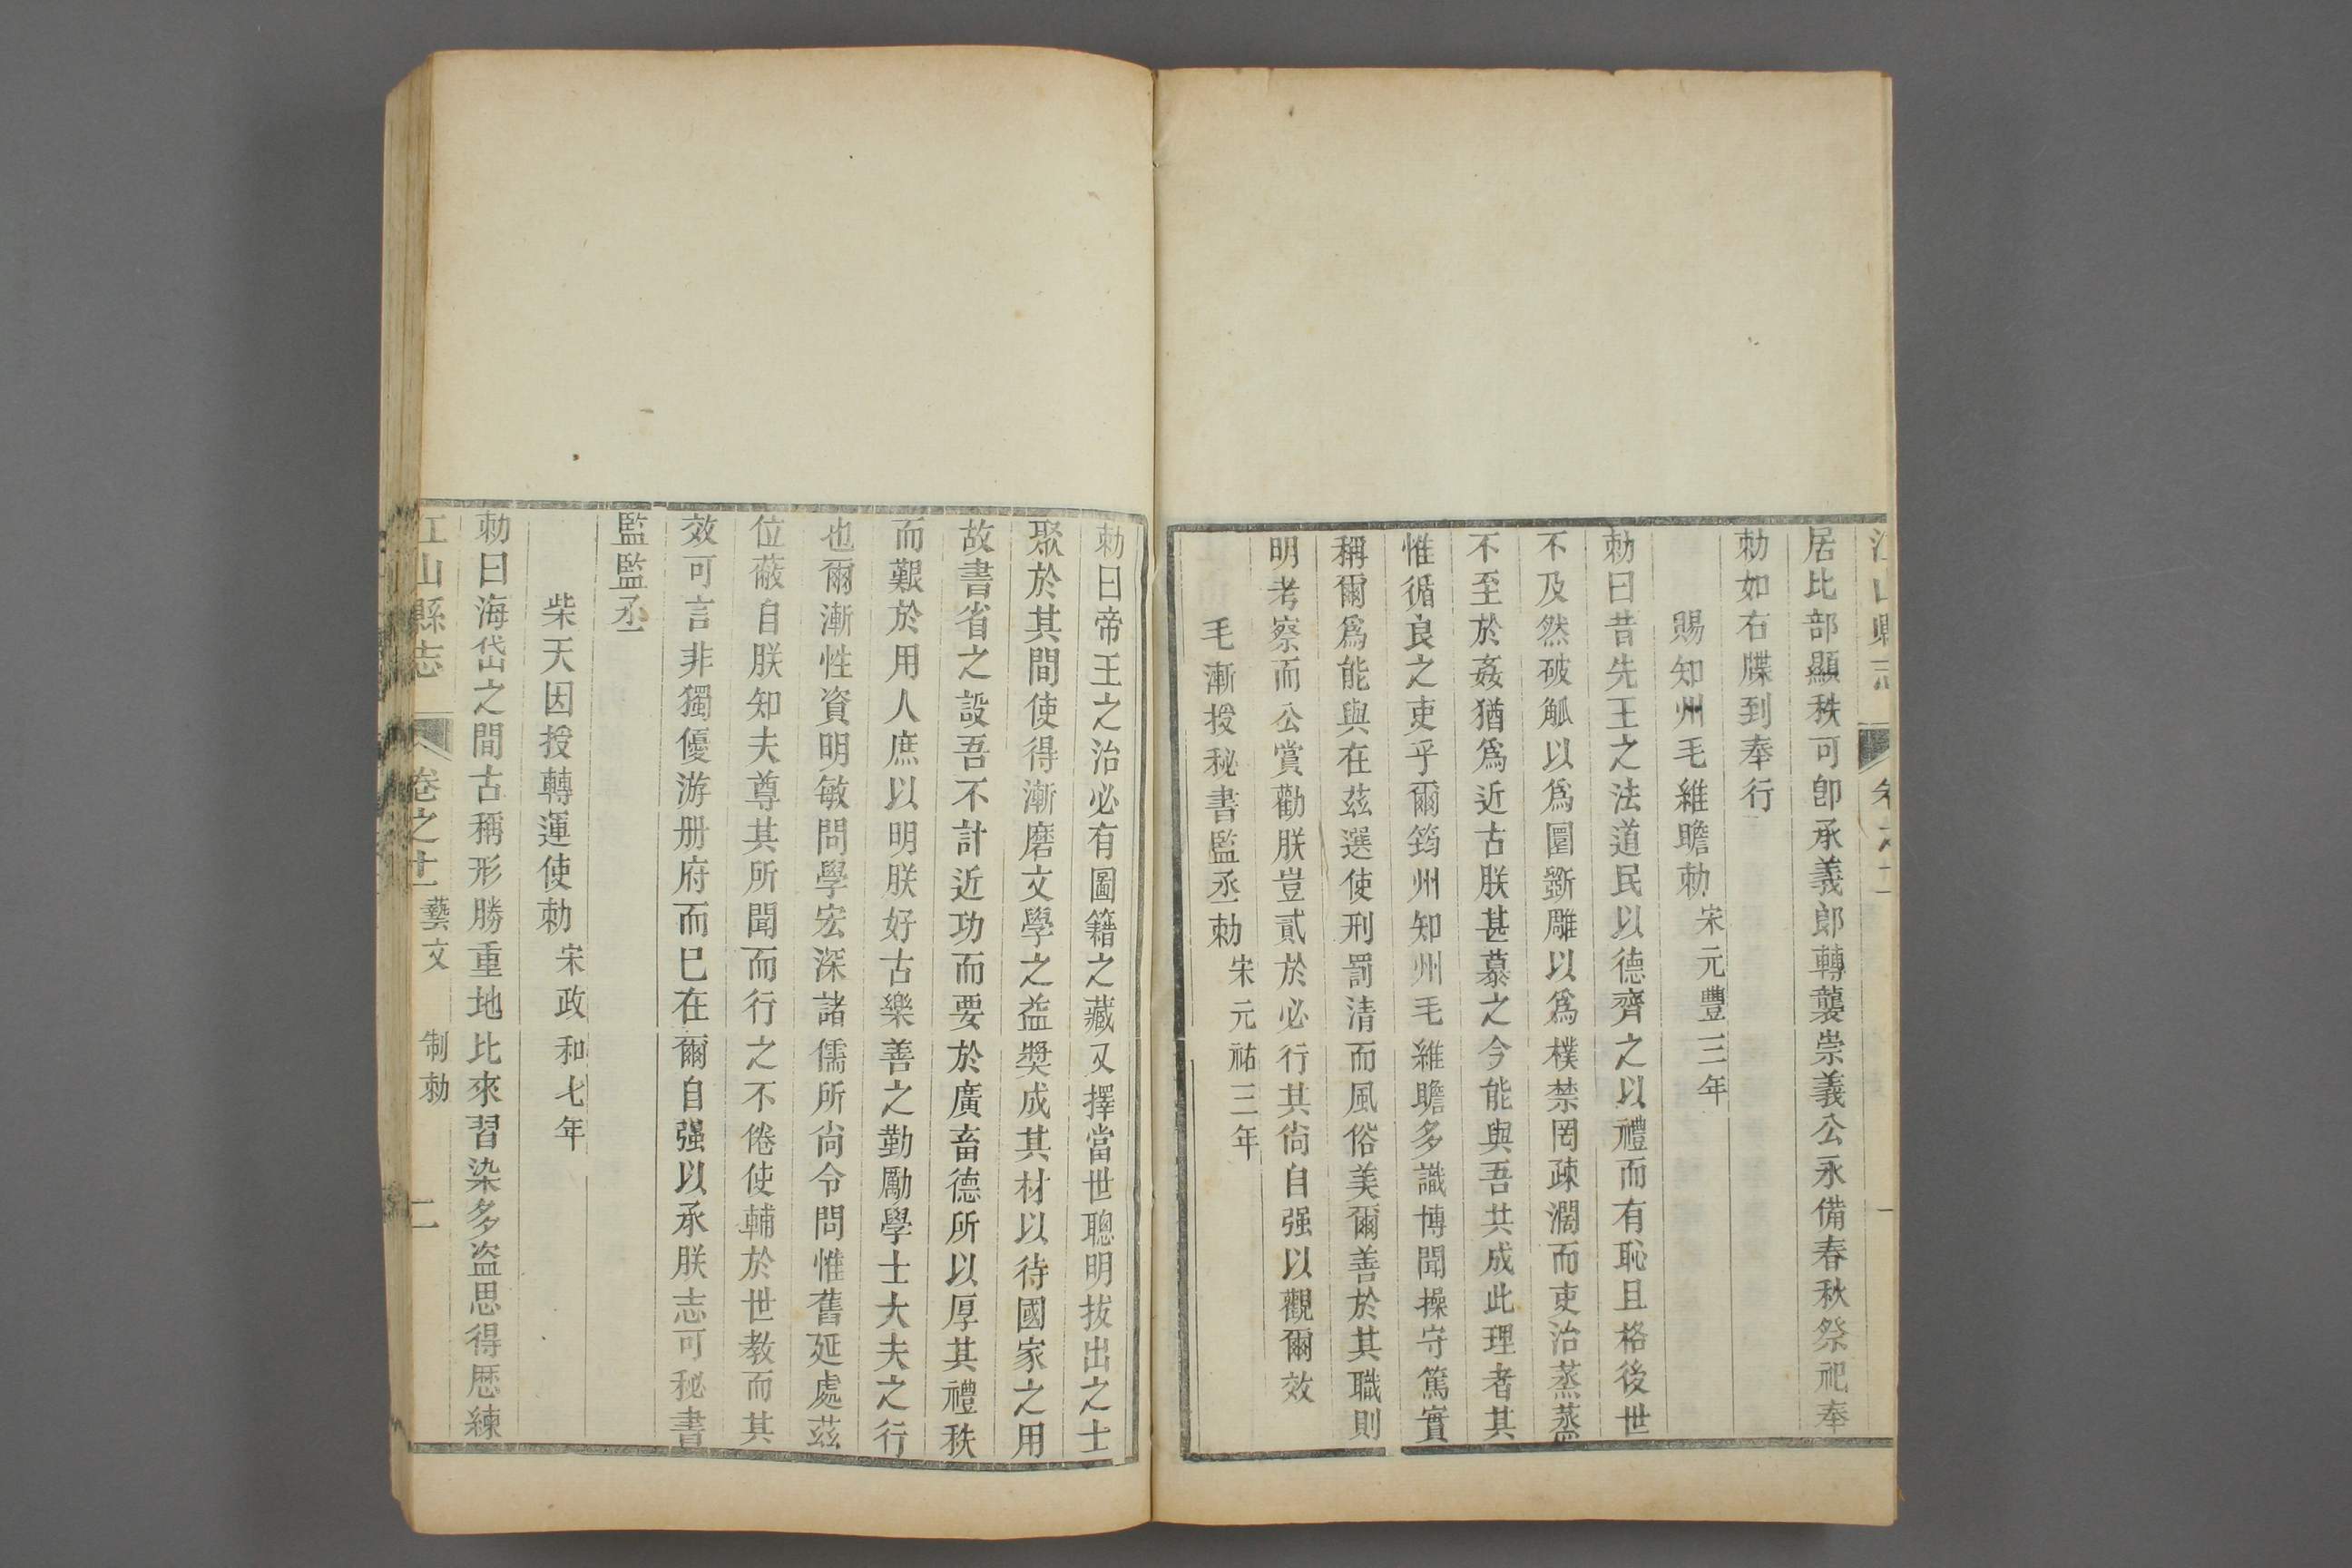 居比部顯秩可卽承義郎轉襲崇義公永備春秋祭祀奉
勅如右牒到奉行
賜知州毛維瞻勅宋元豐三年
勅曰昔先王之法道民以德齊之以禮而有恥且格後世
不及然破觚以爲圜斲雕以爲樸禁罔疎濶而吏治蒸蒸
不至於姦猶爲近古朕甚慕之今能與吾共成此理者其
惟循良之吏乎爾筠州知州毛維瞻多識博聞操守篤實
稱爾爲能與在茲選使刑罰清而風俗美爾善於其職則
明考察而公賞勸朕豈貳於必行其尙自强以觀爾效
毛漸授秘書監丞勅宋元祐三年
勅曰帝王之治必有圖籍之藏又擇當世聰明拔出之士
聚於其間使得漸磨文學之益獎成其材以待國家之用
故書省之設吾不計近功而要於廣畜德所以厚其禮秩
而艱於用人庶以明朕好古樂善之勤勵學士大夫之行
也爾漸性資明敏問學宏深諸儒所尙令問惟舊延處茲
位蔽自朕知夫尊其所聞而行之不倦使輔於世教而其
效可言非獨優游册府而已在爾自强以承朕志可秘書
監監丞
柴天因授轉運使勅宋政和七年
勅曰海岱之間古稱形勝重地比來習染多盜思得歷練
江山縣志 卷之十一 藝文 制勅 二